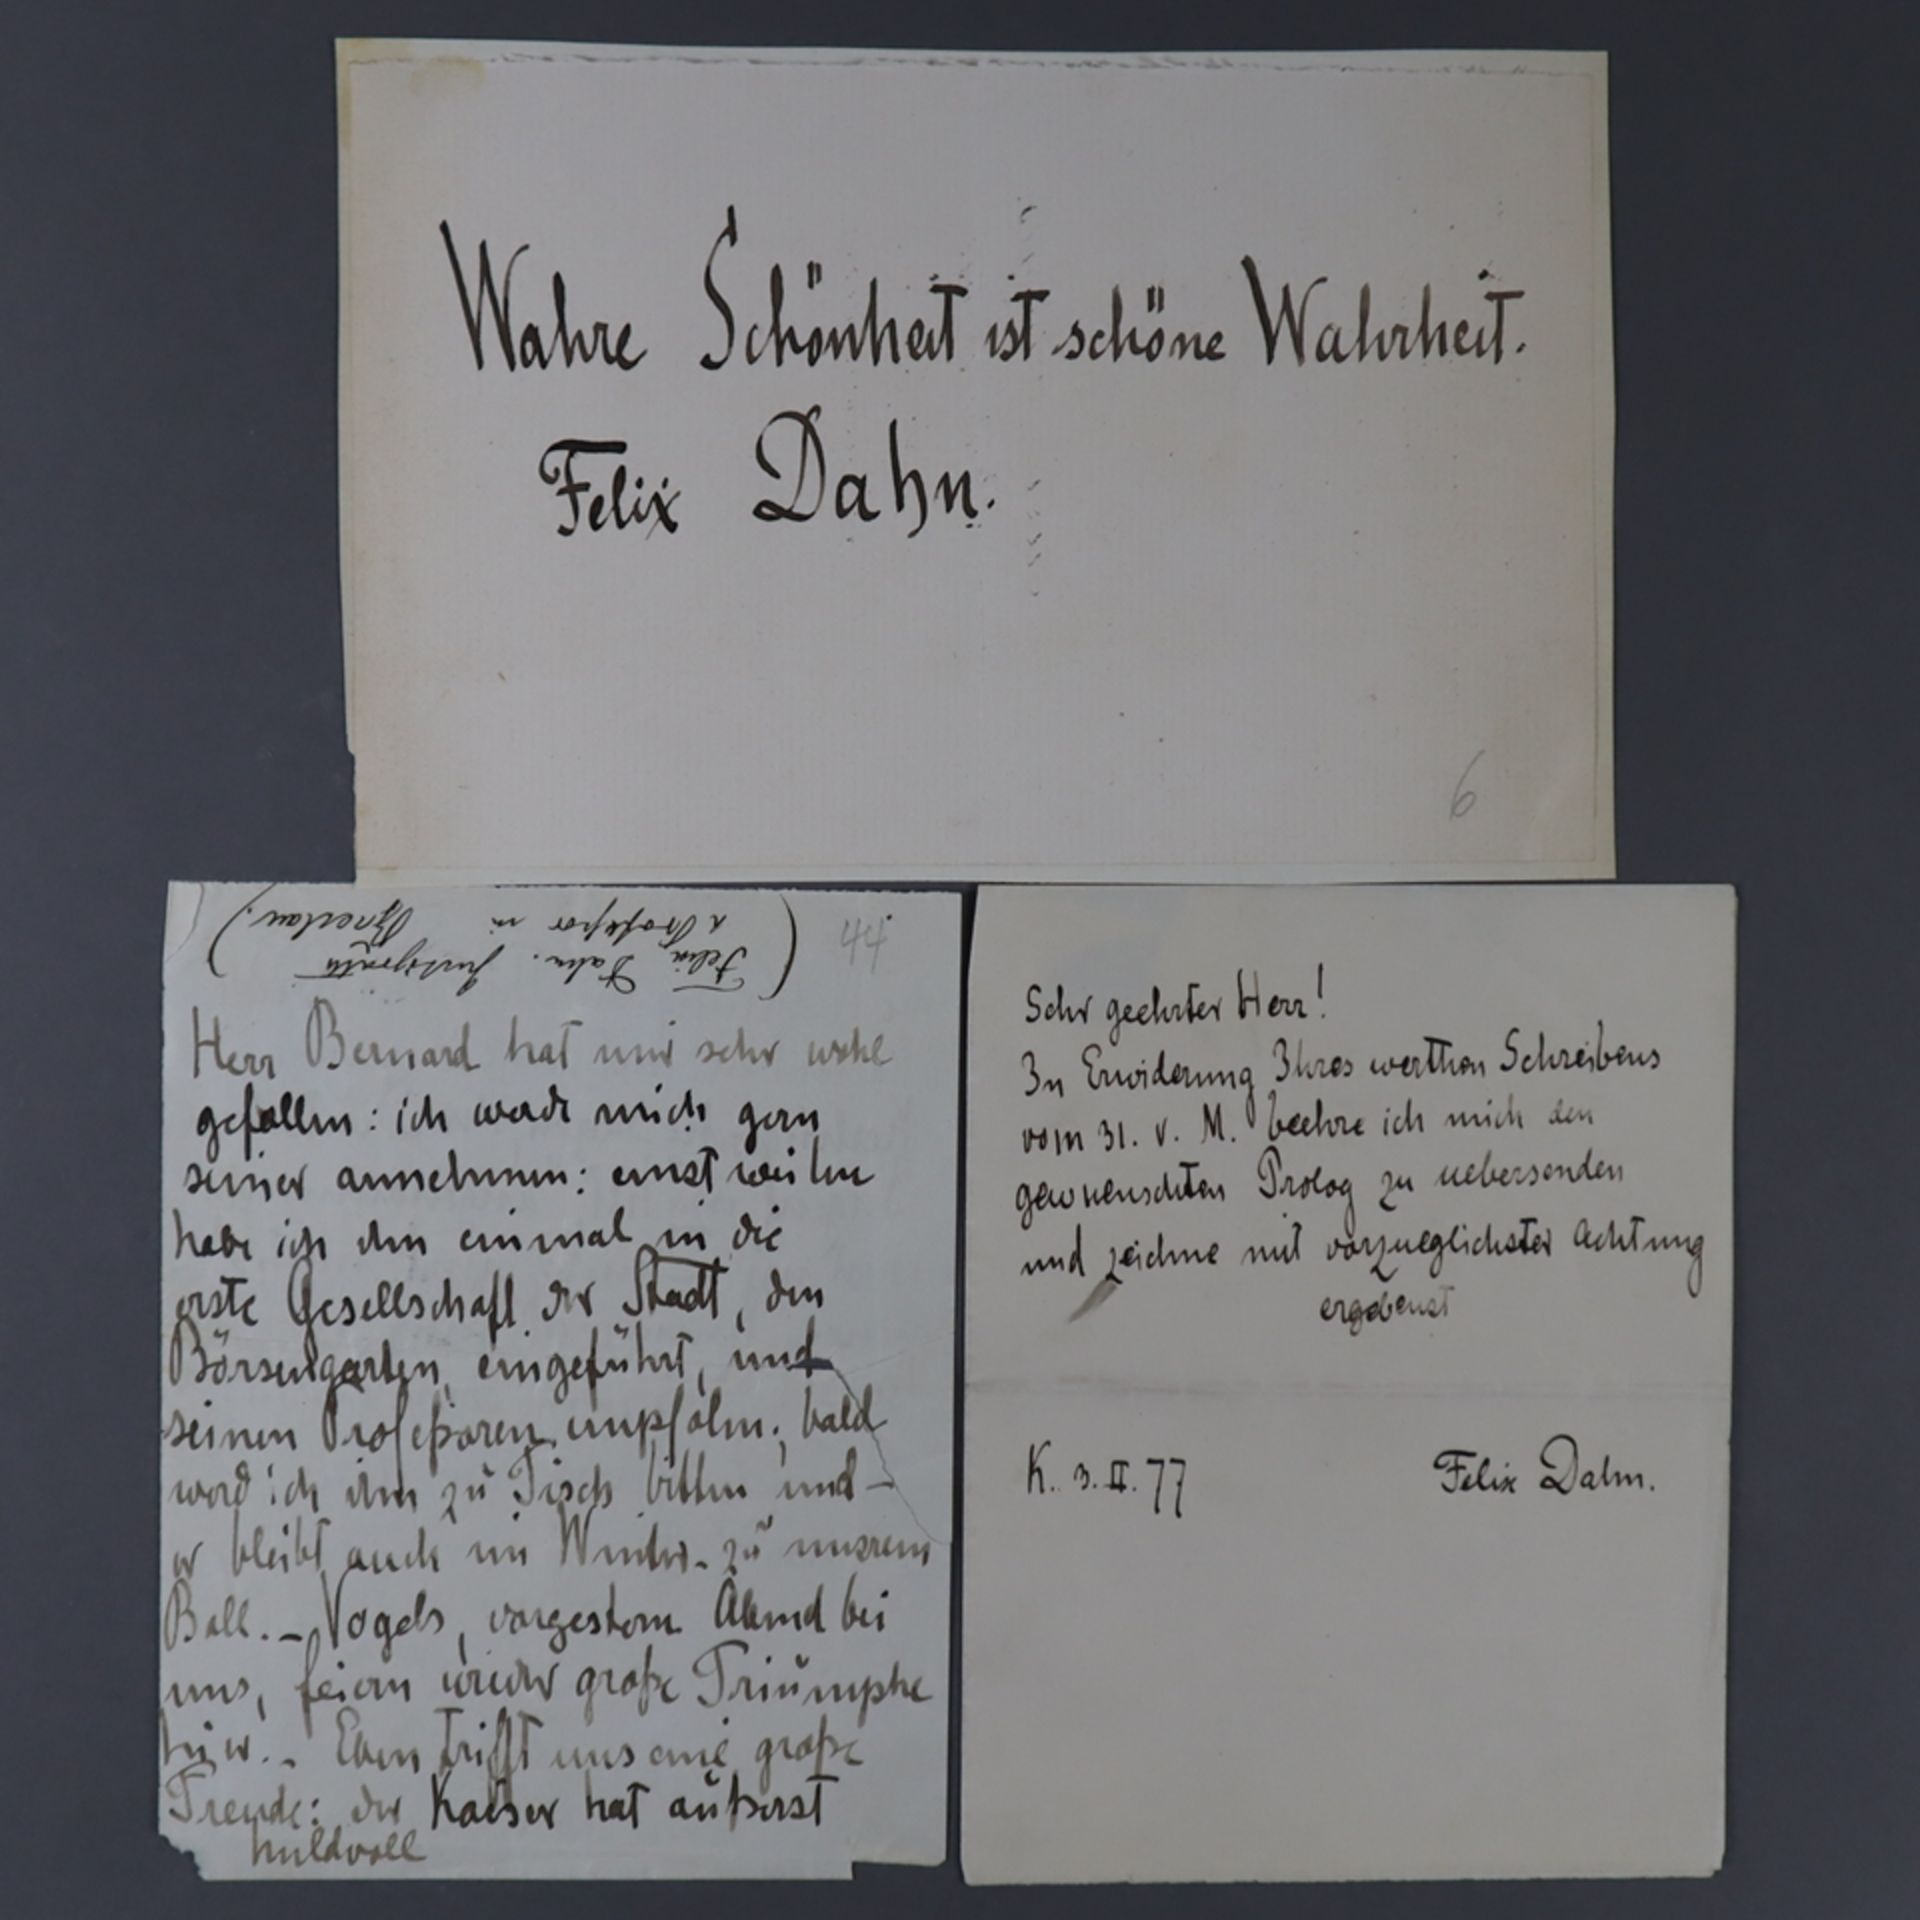 Wahre Schönheit ist schöne Wahrheit.
Felix Dahn.
6
(Felix Dahn. Justizrath
u. Professor in Breslau.)
44
Herr Bernard hat mir sehr wohl
gefallen: ich werde mich gern
seiner annehmen: einstweilen
habe ich ihn einmal in die
erste Gesellschaft der Stadt, den
Börsengarten, eingeführt, und
seinen Profeßoren empfolen; bald
werd ich ihn zu Tisch bitten und –
er bleibt auch im Winter – zu unsrem
Ball. – Vogels, vorgestern Abend bei
uns, feiern wieder große Triumphe
hier. – Eben trifft uns eine große
Freude: der Kaiser hat äußerst
huldvoll
Sehr geehrter Herr!
In Erwiderung Ihres werthen Schreibens
vom 31. v. M. beehre ich mich den
gewuenschten Prolog zu uebersenden
und zeichne mit vorzueglichster Achtung
ergebenst
K. 3. II. 77 Felix Dahn.